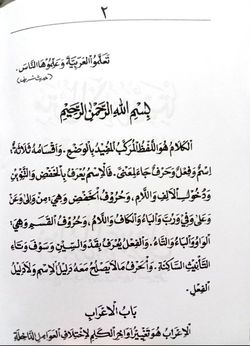 ٢
تَعَلَّمُوا الْعَرَبِيَّةَ وَعَلِّمُوهَا النَّاسَ.
(حديث شريف)
بِسْمِ اللهِ الرَّحْمٰنِ الرَّحِيْمِ
اَلْكَلَامُ هُوَ اللَّفْظُ الْمُرَكَّبُ الْمُفِيْدُ بِالْوَضْعِ، وَاَقْسَامُهُ ثَلَاثَةٌ:
اِسْمٌ وَفِعْلٌ وَحَرْفٌ جَاءَ لِمَعْنًى. فَالْاِسْمُ يُعْرَفُ بِالْخَفْضِ وَالتَّنْوِيْنِ
وَدُخُوْلِ الْاَلِفِ وَاللَّامِ، وَحُرُوْفِ الْخَفْضِ وَهِيَ: مِنْ وَاِلَى وَعَنْ
وَعَلَى وَفِي وَرُبَّ وَالْبَاءُ وَالْكَافُ وَاللَّامُ، وَحُرُوْفِ الْقَسَمِ وَهِيَ:
اَلْوَاوُ وَالْبَاءُ وَالتَّاءُ. وَالْفِعْلُ يُعْرَفُ بِقَدْ وَالسِّيْنِ وَسَوْفَ وَتَاءِ
التَّأْنِيْثِ السَّاكِنَةِ. وَالْحَرْفُ مَا لَا يَصْلُحُ مَعَهُ دَلِيْلُ الْاِسْمِ وَلَا دَلِيْلُ
الْفِعْلِ.
بَابُ الْاِعْرَابِ
اَلْاِعْرَابُ هُوَ تَغْيِيْرُ اَوَاخِرِ الْكَلِمِ لِاخْتِلَافِ الْعَوَامِلِ الدَّاخِلَةِ